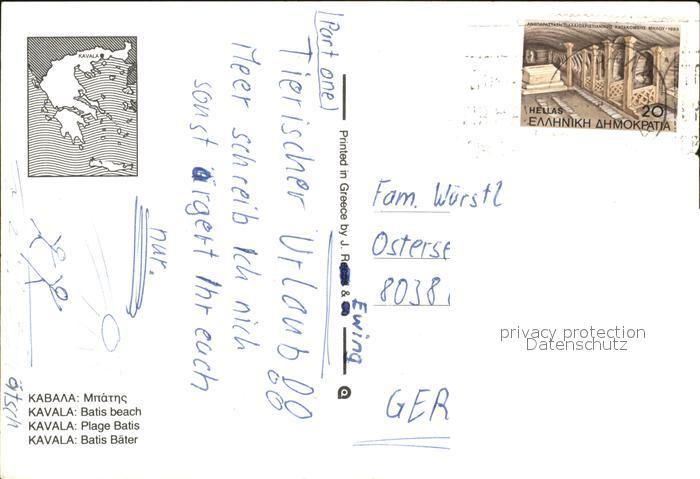 (Part one)
Tierischer Urlaub
Meer schreib Ich nich
sonst ärgert Ihr euch
nur.
ätsch
KAVALA
ΚΑΒΑΛΑ: Μπάτης
KAVALA: Batis beach
KAVALA: Plage Batis
KAVALA: Batis Bäter
Printed in Greece by J. & Ewing
HELLAS 20
ΕΛΛΗΝΙΚΗ ΔΗΜΟΚΡΑΤΙΑ
Fam. Würstl
Osterse
8038
GER
privacy protection
Datenschutz